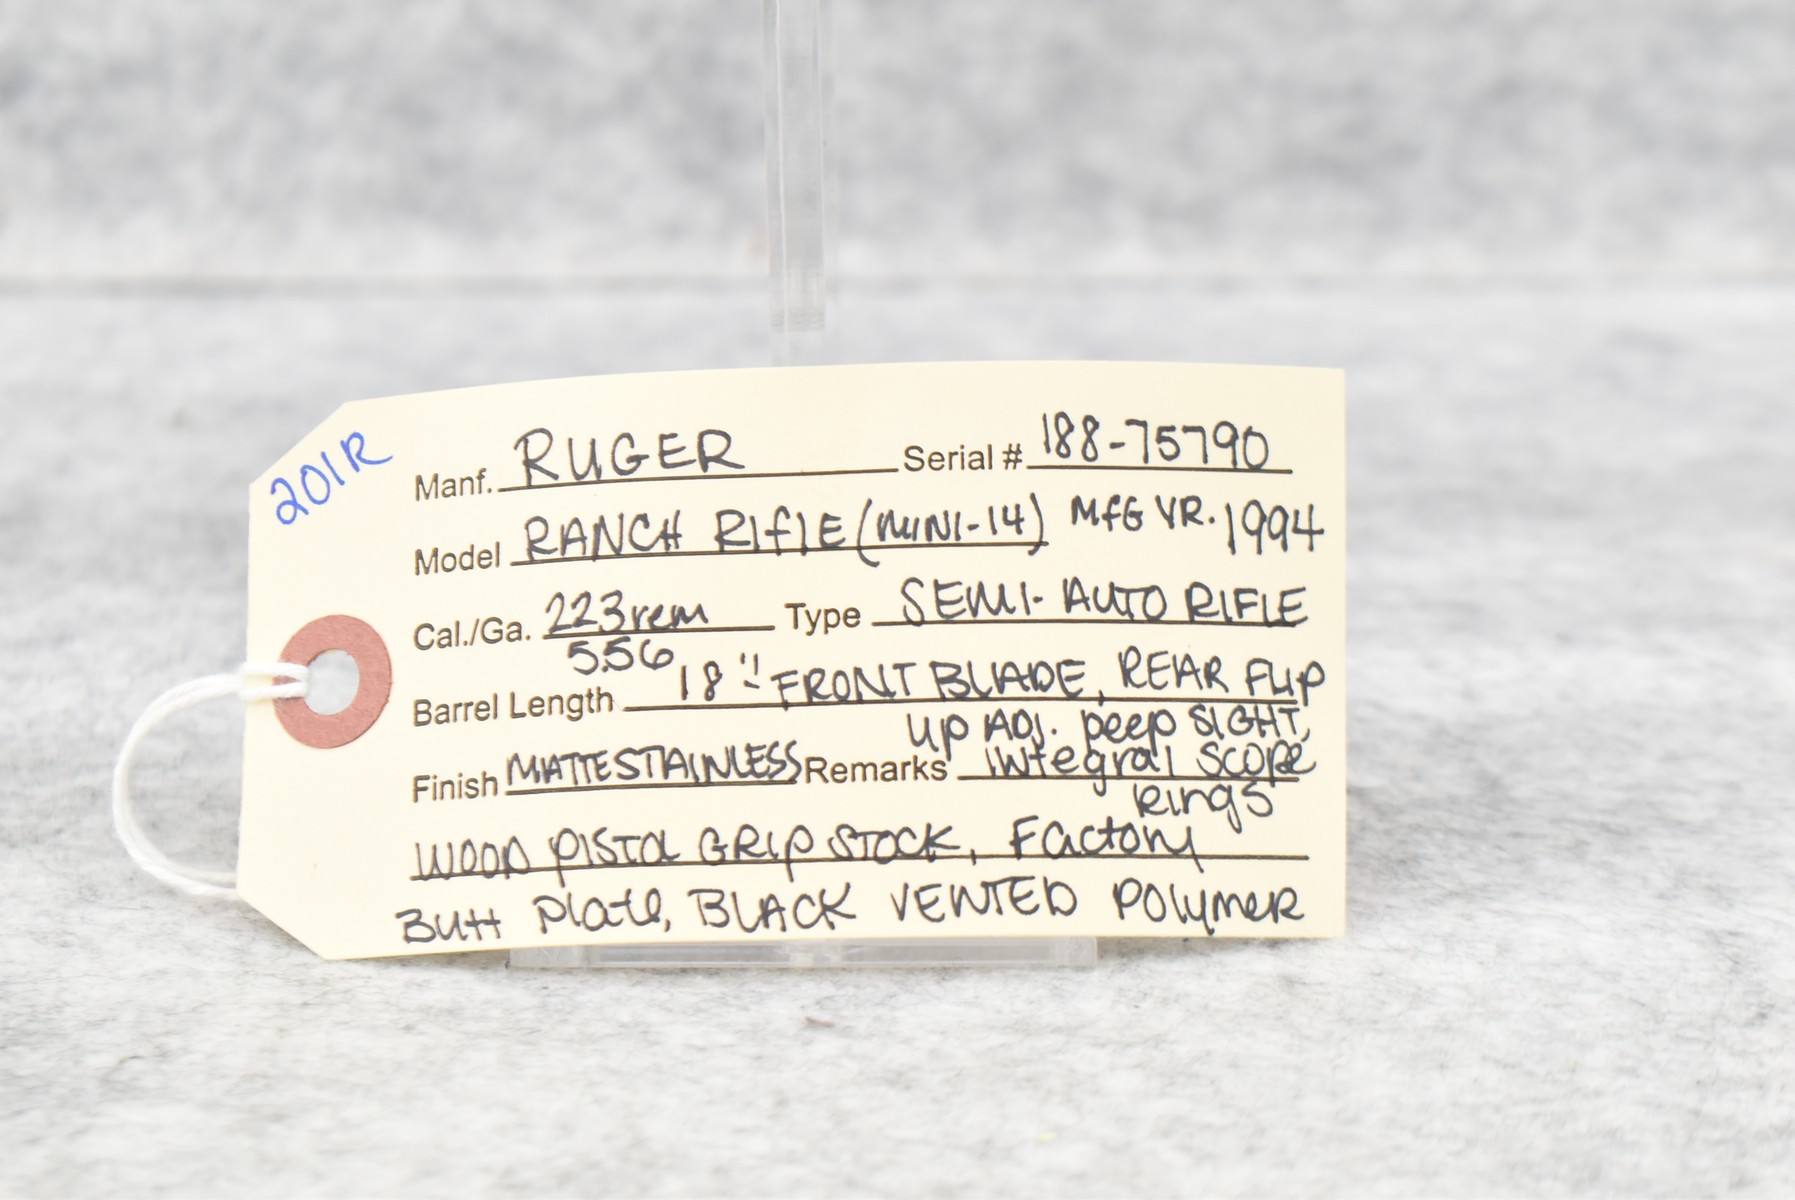 201R
Manf. RUGER Serial # 188-75790
Model RANCH RIFLE (MINI-14) MFG YR. 1994
Cal./Ga. 223rem Type SEMI-AUTO RIFLE
5.56
Barrel Length 18" - FRONT BLADE, REAR FLIP
UP ADJ. peep SIGHT,
Finish MATTE STAINLESS Remarks integral scope
Rings
WOOD PISTOL GRIP STOCK, Factory
Butt plate, BLACK VENTED POLYMER